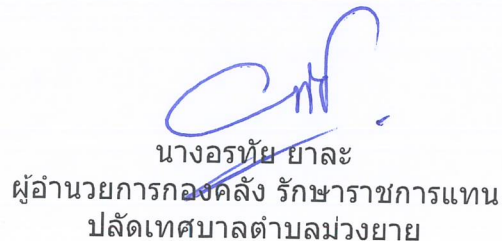 นางอรทัย ยาละ
ผู้อำนวยการกองคลัง รักษาราชการแทน
ปลัดเทศบาลตำบลม่วงยาย